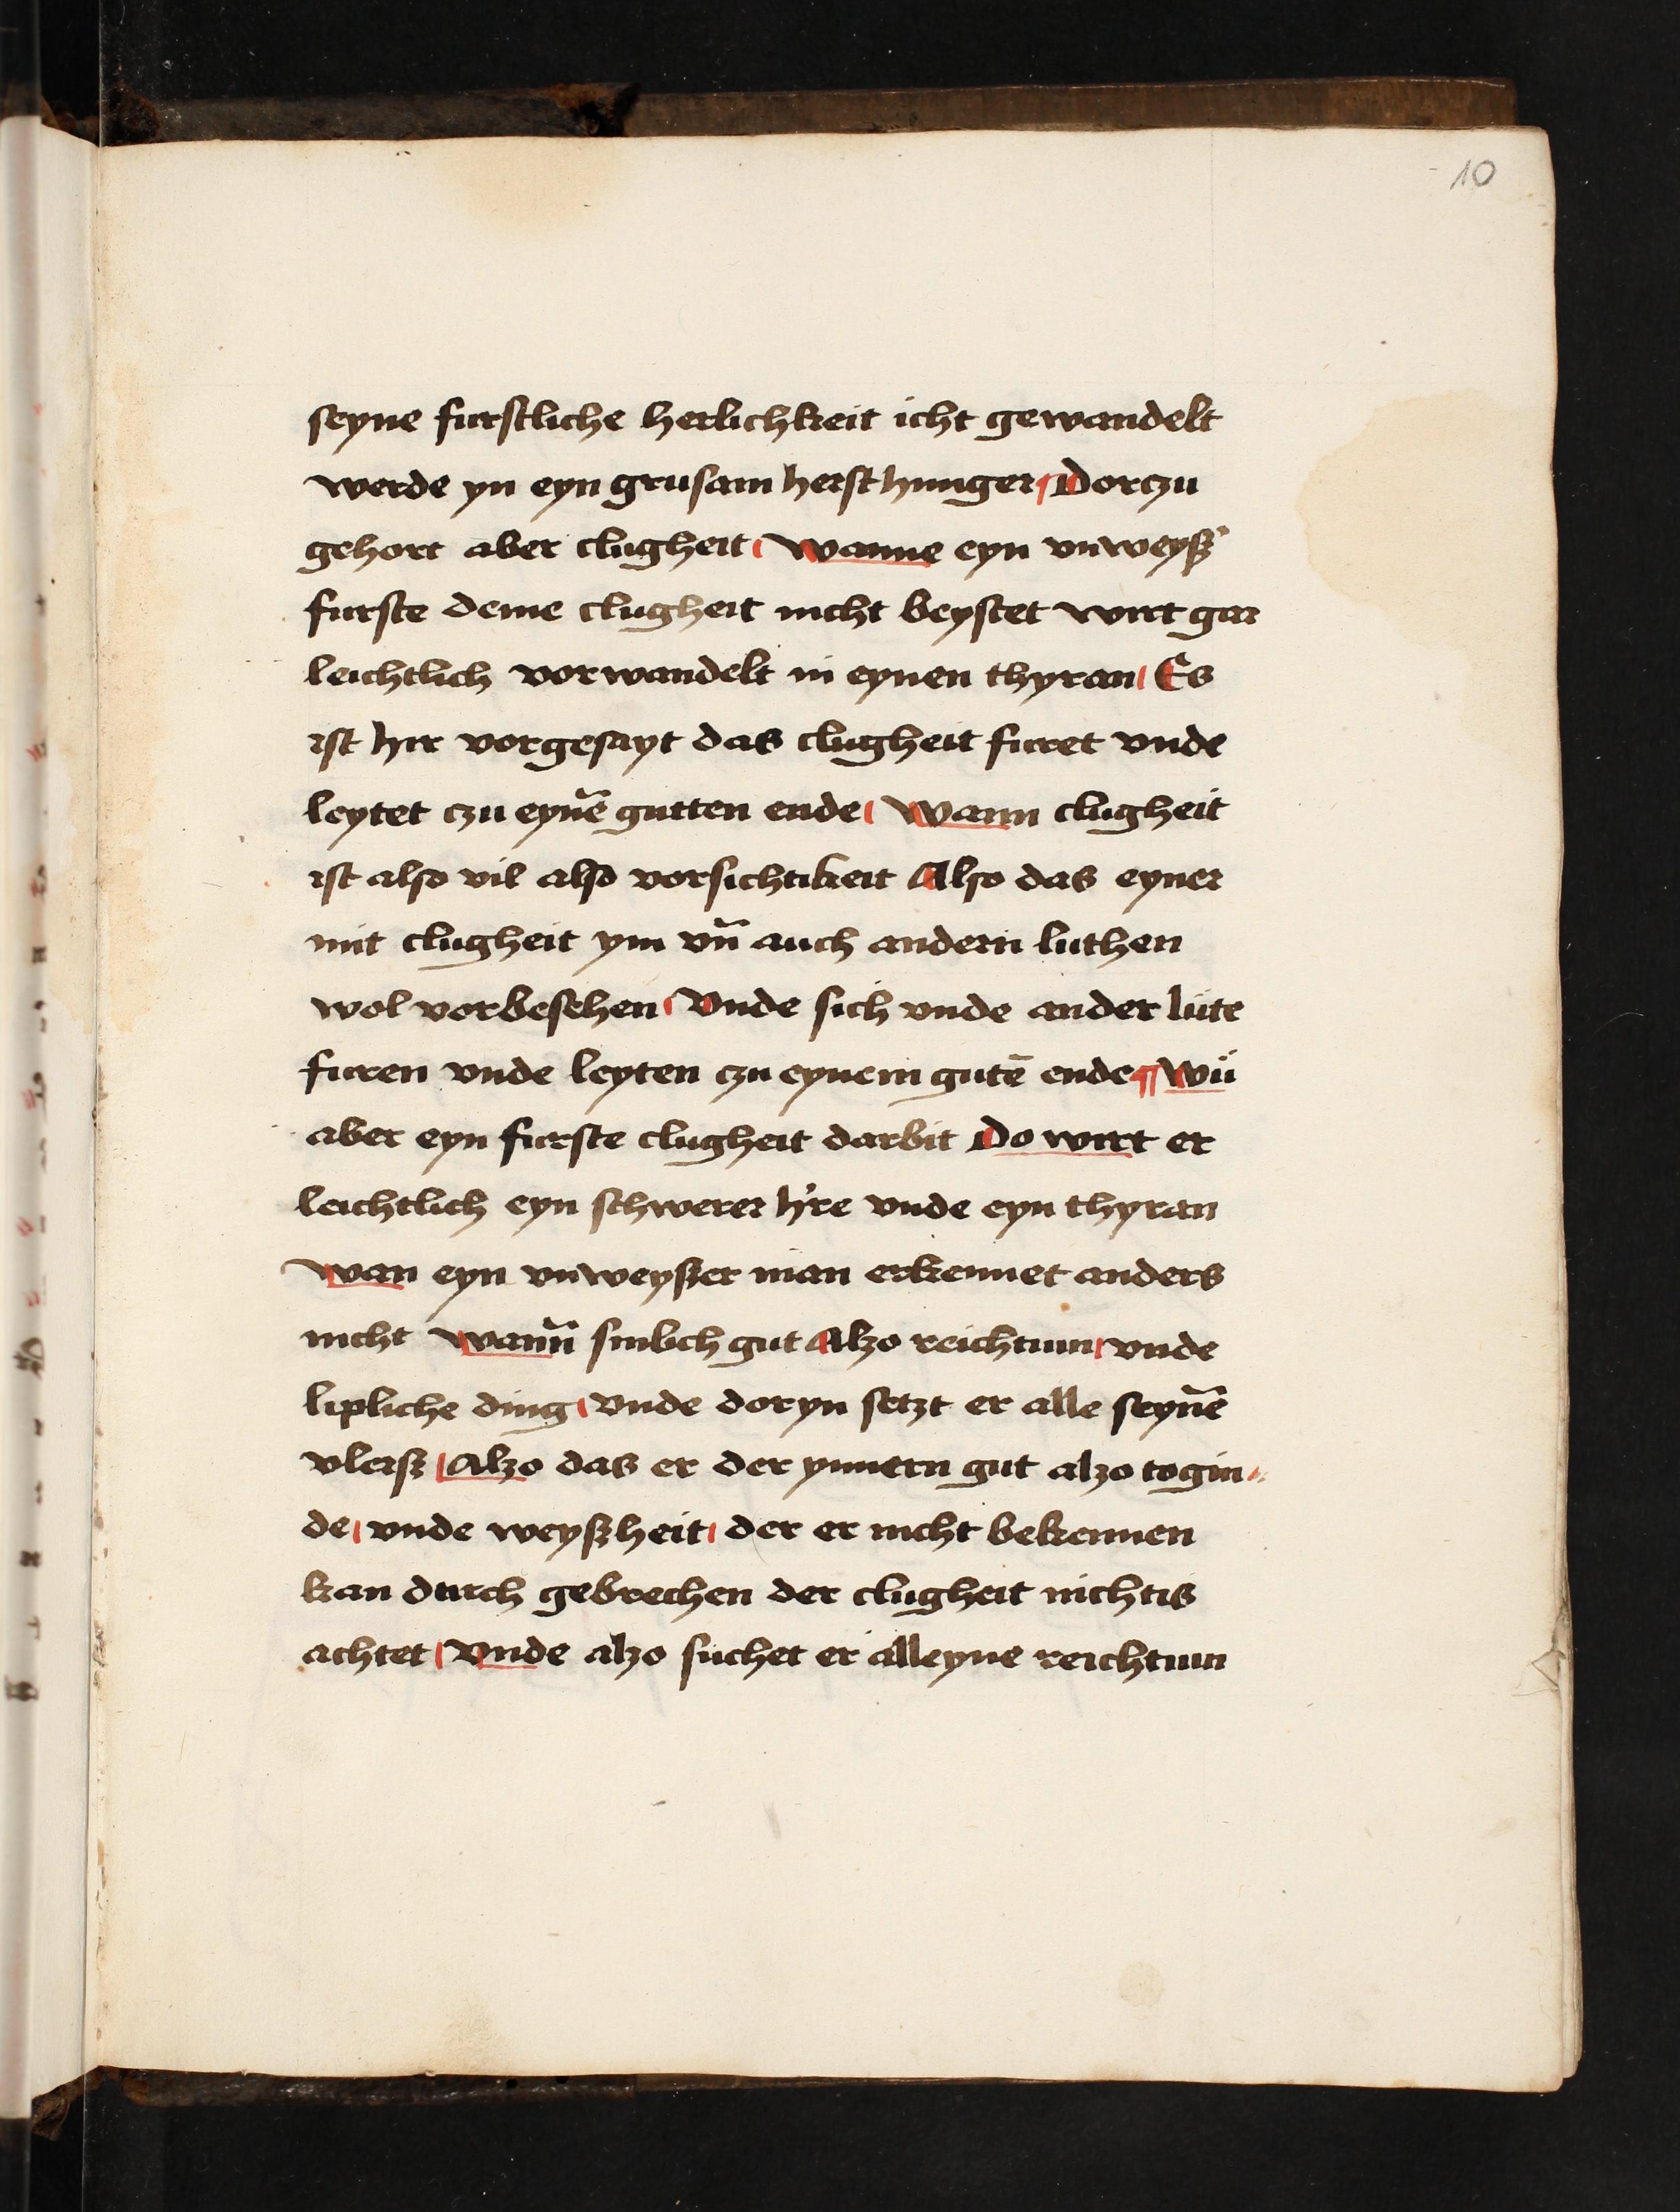 10
seyne furstliche herlichkeit icht gewandelt
werde yn eyn grusam hersthunger Dorczu
gehort aber clugheit Wanne eyn vnweyß'
furste deme clugheit nicht beystet wirt gar
leichtlich vorwandelt in eynen thyran Es
ist hir vorgesayt das clugheit furet vnde
leytet czu eynē gutten ende Wann clugheit
ist also vil also vorsichtikeit Also das eyner
mit clugheit ym vn̄ auch andern luthen
wol vorbesehen Vnde sich vnde ander lüte
furen vnde leyten czu eynem gutē ende Wü
aber eyn furste clugheit darbit Do wirt er
leichtlich eyn schwerer h're vnde eyn thyran
Wan eyn vnweyßer man erkennet anders
nicht Wann̄ sinlich gut Alzo reichtum vnde
lipliche ding Vnde doryn setzt er alle seynē
vleisz Alzo das er der ynnern gut alzo togin
de vnde weyßheit der er nicht bekennen
kan durch gebrechen der clugheit nichtis
achtet Vnde alzo suchet er alleyne reichtum